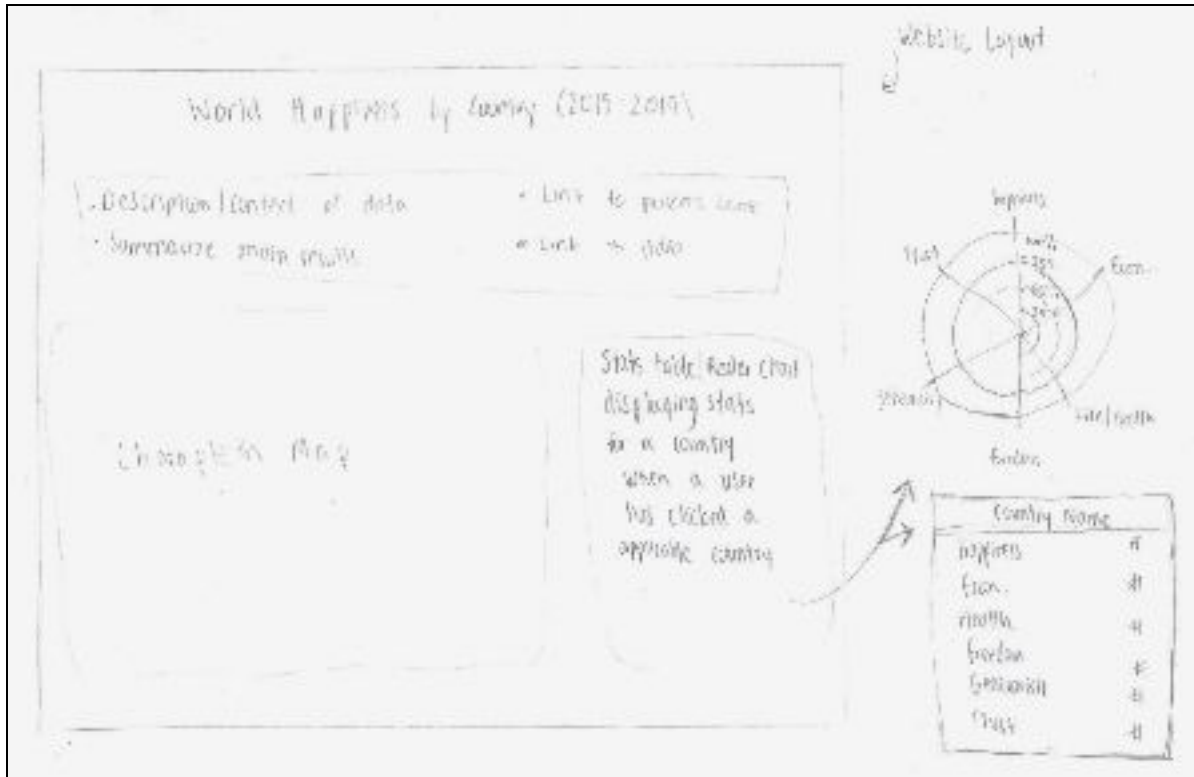 Website Layout
World Happiness by Country (2015-2019)
• Description/Context of data
• Summarize main results
• Link to
• Link to
Choropleth Map
Stats table/Radar Chart
displaying stats
for a country
when a user
has clicked a
applicable country
Happiness
Econ.
Life/Health
Freedom
Generosity
Trust
100%
75%
50%
25%
Country Name
Happiness #
Econ. #
Health #
Freedom #
Generosity #
Trust #